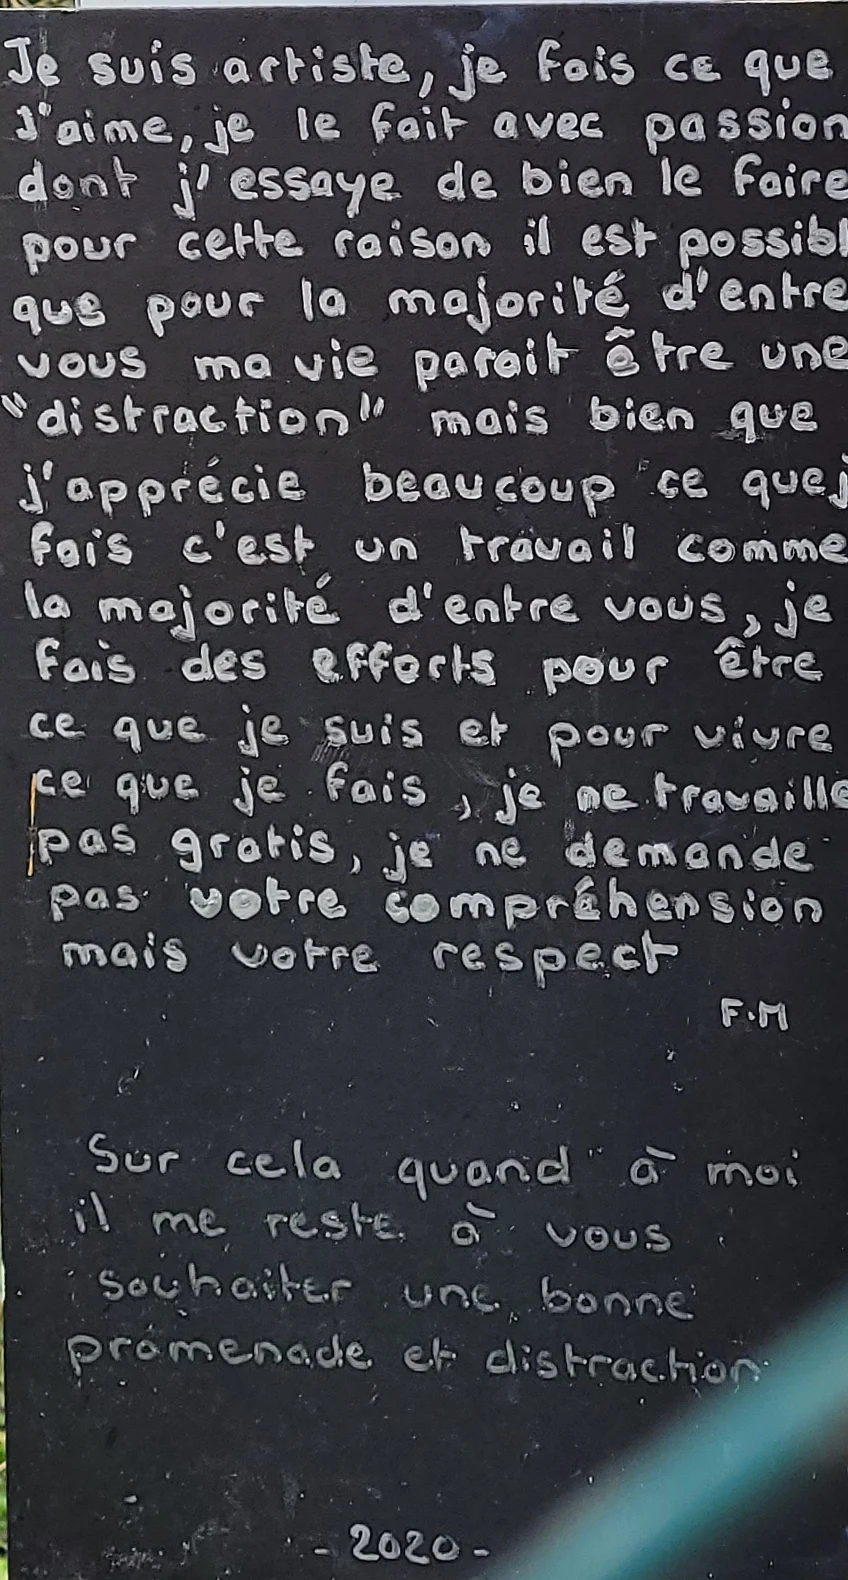 Je suis artiste, je fais ce que
J'aime, je le fait avec passion
dont j'essaye de bien le faire
pour cette raison il est possibl
que pour la majorité d'entre
vous ma vie parait être une
"distraction" mais bien que
j'apprécie beaucoup ce que j
fais c'est un travail comme
la majorité d'entre vous, je
fais des efforts pour être
ce que je suis et pour vivre
ce que je fais, je ne travaille
pas gratis, je ne demande
pas votre compréhension
mais votre respect
F.M
Sur cela quand à moi
il me reste à vous
souhaiter une bonne
promenade et distraction
- 2020 -